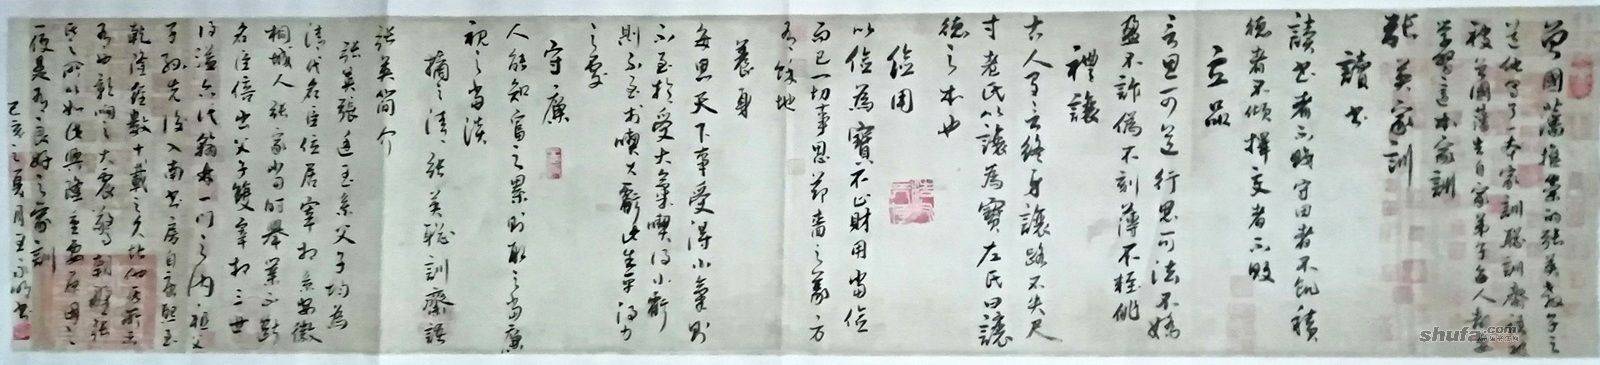 曾國藩推崇的張英教子之
道他寫了一本家訓聰訓齋語
被曾國藩告自家弟子每人都要
学習這本家訓
張英家訓
讀書
讀書者不賤守田者不飢積
德者不傾擇交者不敗
立品
言思可道行思可法不驕
盈不詐偽不刻薄不輕佻
禮讓
古人有言終身讓路不失尺
寸老氏以讓為寶左氏曰讓
德之本也
儉用
以儉為寶不止財用當儉
而已一切事思節嗇之義方
有餘地
養身
每思天下事受得小氣則
不至於受大氣喫得小虧
則不至於喫大虧此生平得力
之處
守廉
人能知富之累則取之當廉
視之當淡
摘之清張英聰訓齋語
張英簡介
張英張廷玉系父子均為
清代名臣位居宰相系安徽
桐城人張家當時舉業正
名臣倍出父子雙宰相三世
得謚六代翰林一門之内祖父
子孫先後入南書房自康熙至
乾隆經數十載之久故他
之大震驚朝野張
氏之所以如此興隆主要原因之
一便是有良好之家訓
己亥之夏月王永明書
shufa.com